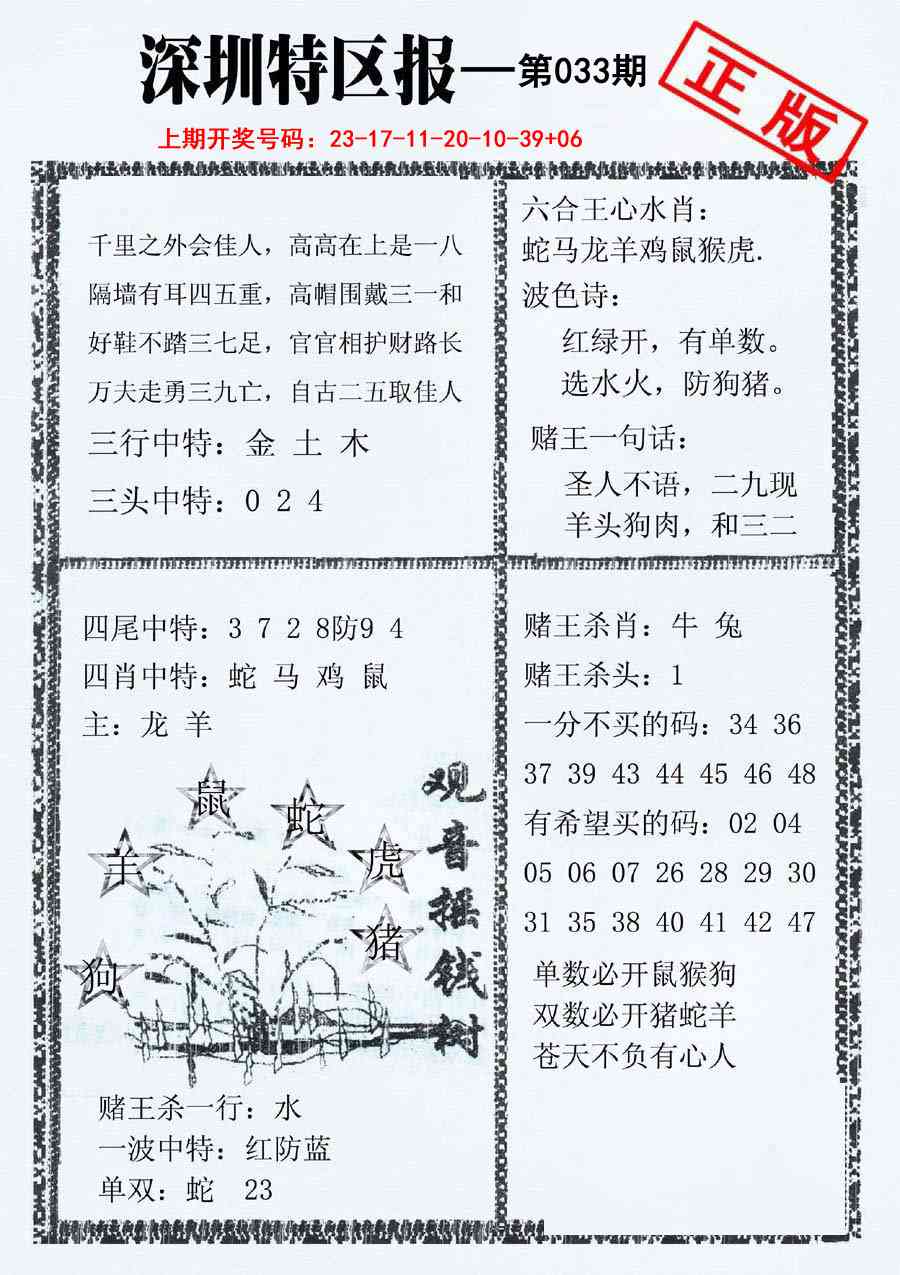 深圳特区报—第033期
正版
上期开奖号码：23-17-11-20-10-39+06
千里之外会佳人，高高在上是一八
隔墙有耳四五重，高帽围戴三一和
好鞋不踏三七足，官官相护财路长
万夫走勇三九亡，自古二五取佳人
三行中特：金 土 木
三头中特：0 2 4
六合王心水肖：
蛇马龙羊鸡鼠猴虎.
波色诗：
红绿开，有单数。
选水火，防狗猪。
赌王一句话：
圣人不语，二九现
羊头狗肉，和三二
四尾中特：3 7 2 8防9 4
四肖中特：蛇 马 鸡 鼠
主：龙 羊
鼠
蛇
羊
虎
猪
狗
观音摇钱树
赌王杀一行：水
一波中特：红防蓝
单双：蛇 23
赌王杀肖：牛 兔
赌王杀头：1
一分不买的码：34 36
37 39 43 44 45 46 48
有希望买的码：02 04
05 06 07 26 28 29 30
31 35 38 40 41 42 47
单数必开鼠猴狗
双数必开猪蛇羊
苍天不负有心人